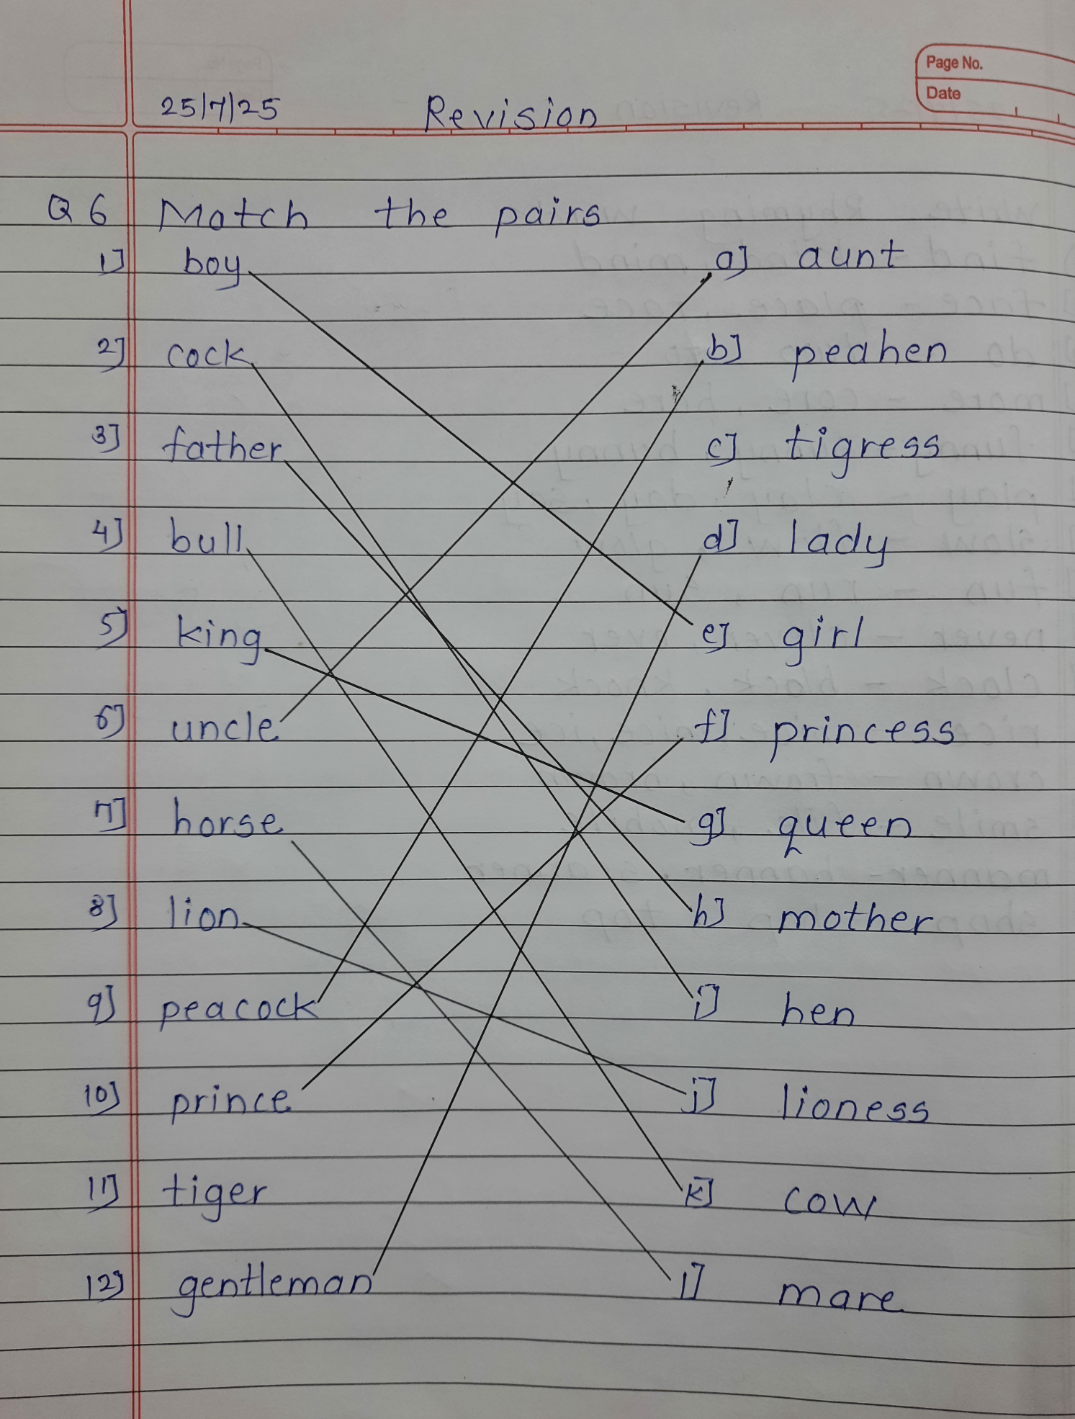 Page No.
Date
25/7/25 Revision
Q 6 Match the pairs
1] boy a] aunt
2] cock b] peahen
3] father c] tigress
4] bull d] lady
5] king e] girl
6] uncle f] princess
7] horse g] queen
8] lion h] mother
9] peacock i] hen
10] prince j] lioness
11] tiger k] cow
12] gentleman l] mare